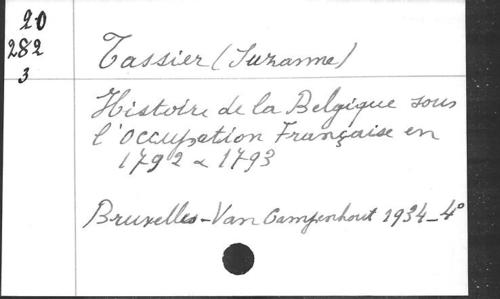 20
282
3
Tassier (Suzanne)
Histoire de la Belgique sous
l'Occupation Française en
1792 & 1793
Bruxelles - Van Campenhout 1934_4°